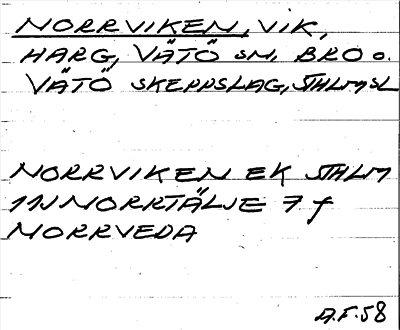 NORRVIKEN, VIK,
HARG, VÄTÖ SN, BRO O.
VÄTÖ SKEPPSLAG, STHLMS L
NORRVIKEN EK STHLM
11J NORRTÄLJE 7 f
NORRVEDA
A.F.58